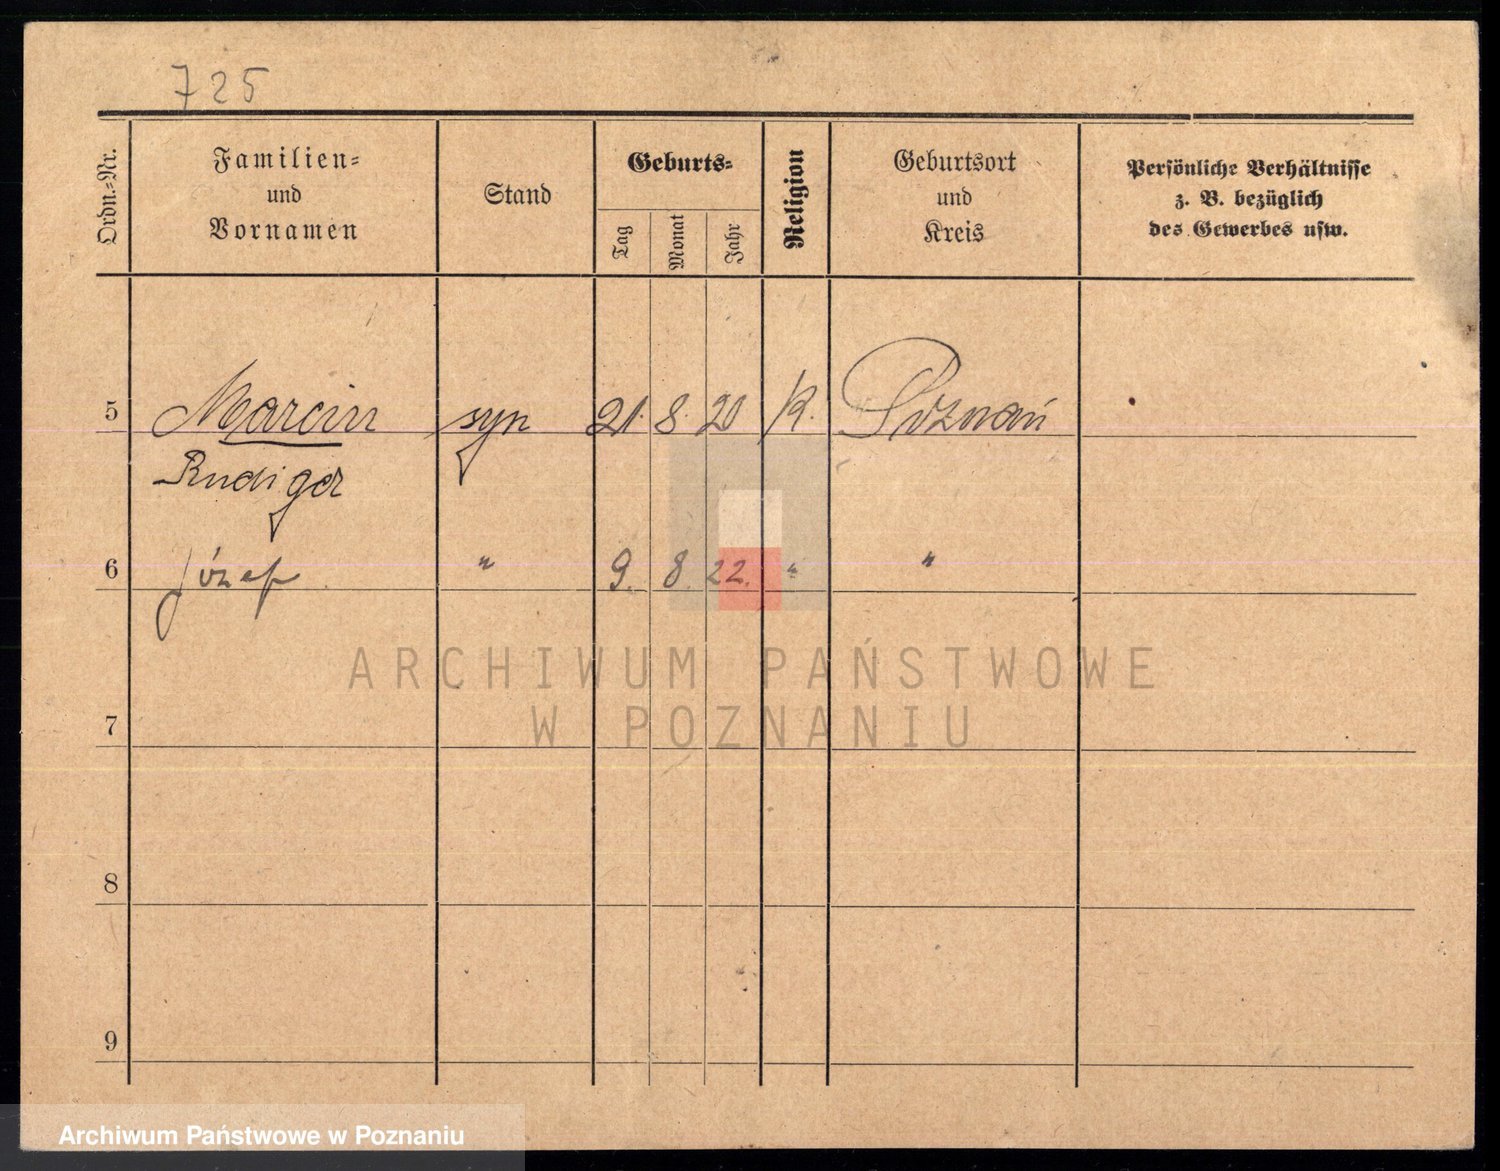 725
Ordn.-Nr.
Familien-
und
Vornamen
Stand
Geburts-
Tag
Monat
Jahr
Religion
Geburtsort
und
Kreis
Persönliche Verhältnisse
z. B. bezüglich
des Gewerbes usw.
5 Marcin syn 21. 8. 20 K. Poznań
Rudiger
6 Józef " 9. 8. 22. " "
7
8
9
ARCHIWUM PAŃSTWOWE
W POZNANIU
Archiwum Państwowe w Poznaniu